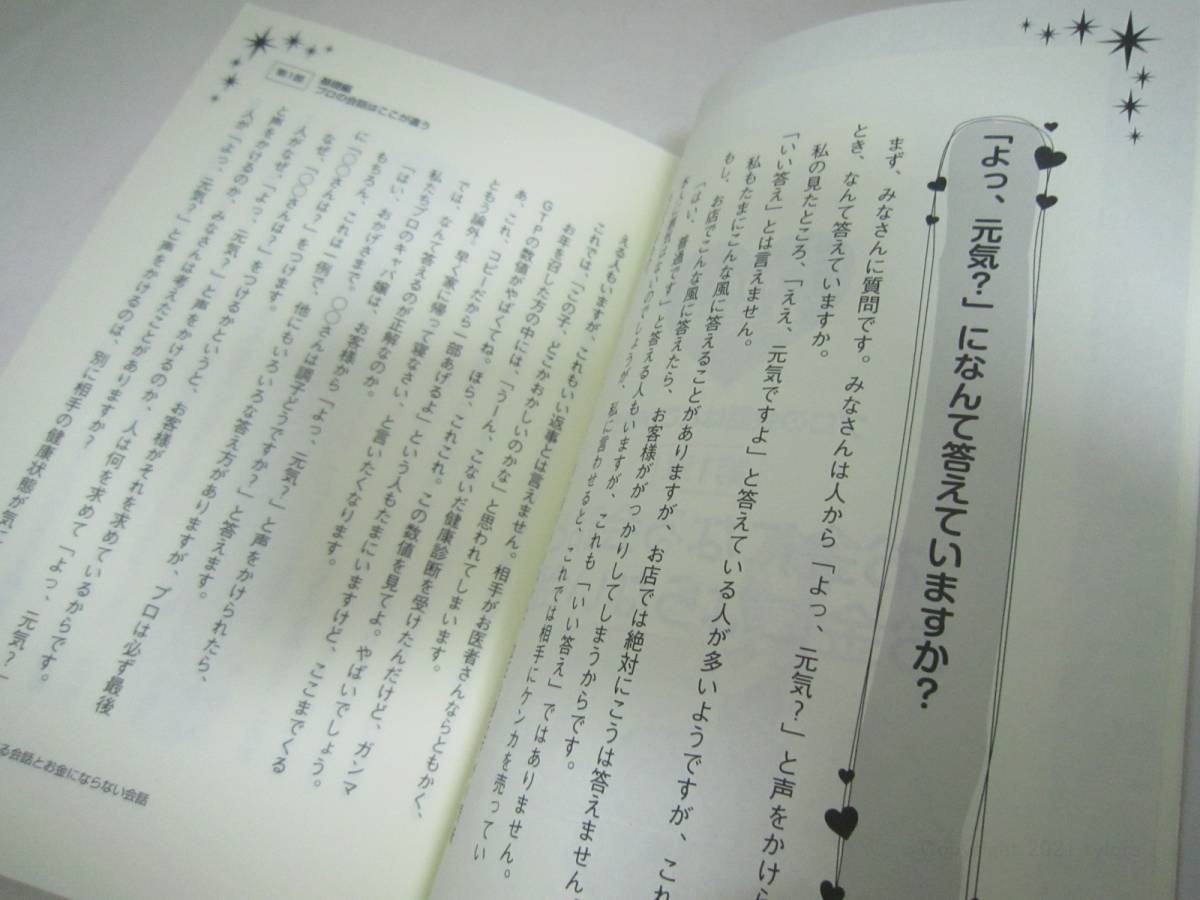 「よっ、元気?」になんて答えていますか?
まず、みなさんに質問です。みなさんは人から「よっ、元気?」と声をかけら
とき、なんて答えていますか。
私の見たところ、「ええ、元気ですよ」と答えている人が多いようですが、これ
「いい答え」とは言えません。
私もたまにこんな風に答えることがありますが、お店では絶対にこうは答えません
もし、お店でこんな風に答えたら、お客様ががっかりしてしまうからです。
「はい、普通です」と答える人もいますが、これも「いい答え」ではありません。
私に言わせると、これでは相手にケンカを売ってい
第1部
基礎編
プロの会話はここが違う
える人もいますが、これもいい返事とは言えません。相手がお医者さんならともかく、
これでは、「この子、どこかおかしいのかな」と思われてしまいます。
お年を召した方の中には、「うーん、こないだ健康診断を受けたんだけど、ガンマ
GTPの数値がやばくてね。ほら、これこれ。この数値を見てよ。やばいでしょう。
あ、これ、コピーだから一部あげるよ」という人もたまにいますけど、ここまでくる
ともう論外。早く家に帰って寝なさい、と言いたくなります。
では、なんて答えるのが正解なのか。
私たちプロのキャバ嬢は、お客様から「よっ、元気?」と声をかけられたら、
「はい、おかげさまで。〇〇さんは調子どうですか?」と答えます。
もちろん、これは一例で、他にもいろいろな答え方がありますが、プロは必ず最後
に「〇〇さんは?」をつけます。
なぜ、「〇〇さんは?」をつけるかというと、お客様がそれを求めているからです。
人がなぜ、「よっ、元気?」と声をかけるのか、人は何を求めて「よっ、元気?」
と声をかけるのか、みなさんは考えたことがありますか?
人が「よっ、元気?」と声をかけるのは、別に相手の健康状態が気に
る会話とお金にならない会話